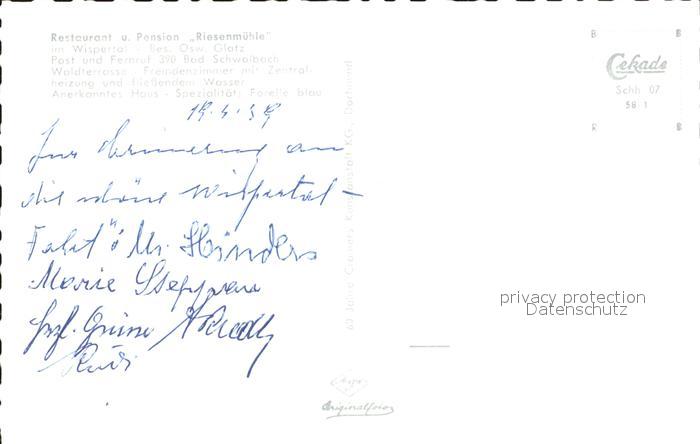 Restaurant u. Pension „Riesenmühle"
im Wispertal - Bes. Osw. Glatz
Post und Fernruf 390 Bad Schwalbach
Waldterrasse - Fremdenzimmer mit Zentral-
heizung und fließendem Wasser
Anerkanntes Haus - Spezialität: Forelle blau
B B
Cekade
Schh 07
58 1
R B
19.4.59
Zur Erinnerung an
die schöne Wispertal-
Fahrt
Marie
Herzl. Grüsse
Rudi
60 Jahre Cramers Kunstanstalt KG., Dortmund
privacy protection
Datenschutz
Agfa
Originalfoto